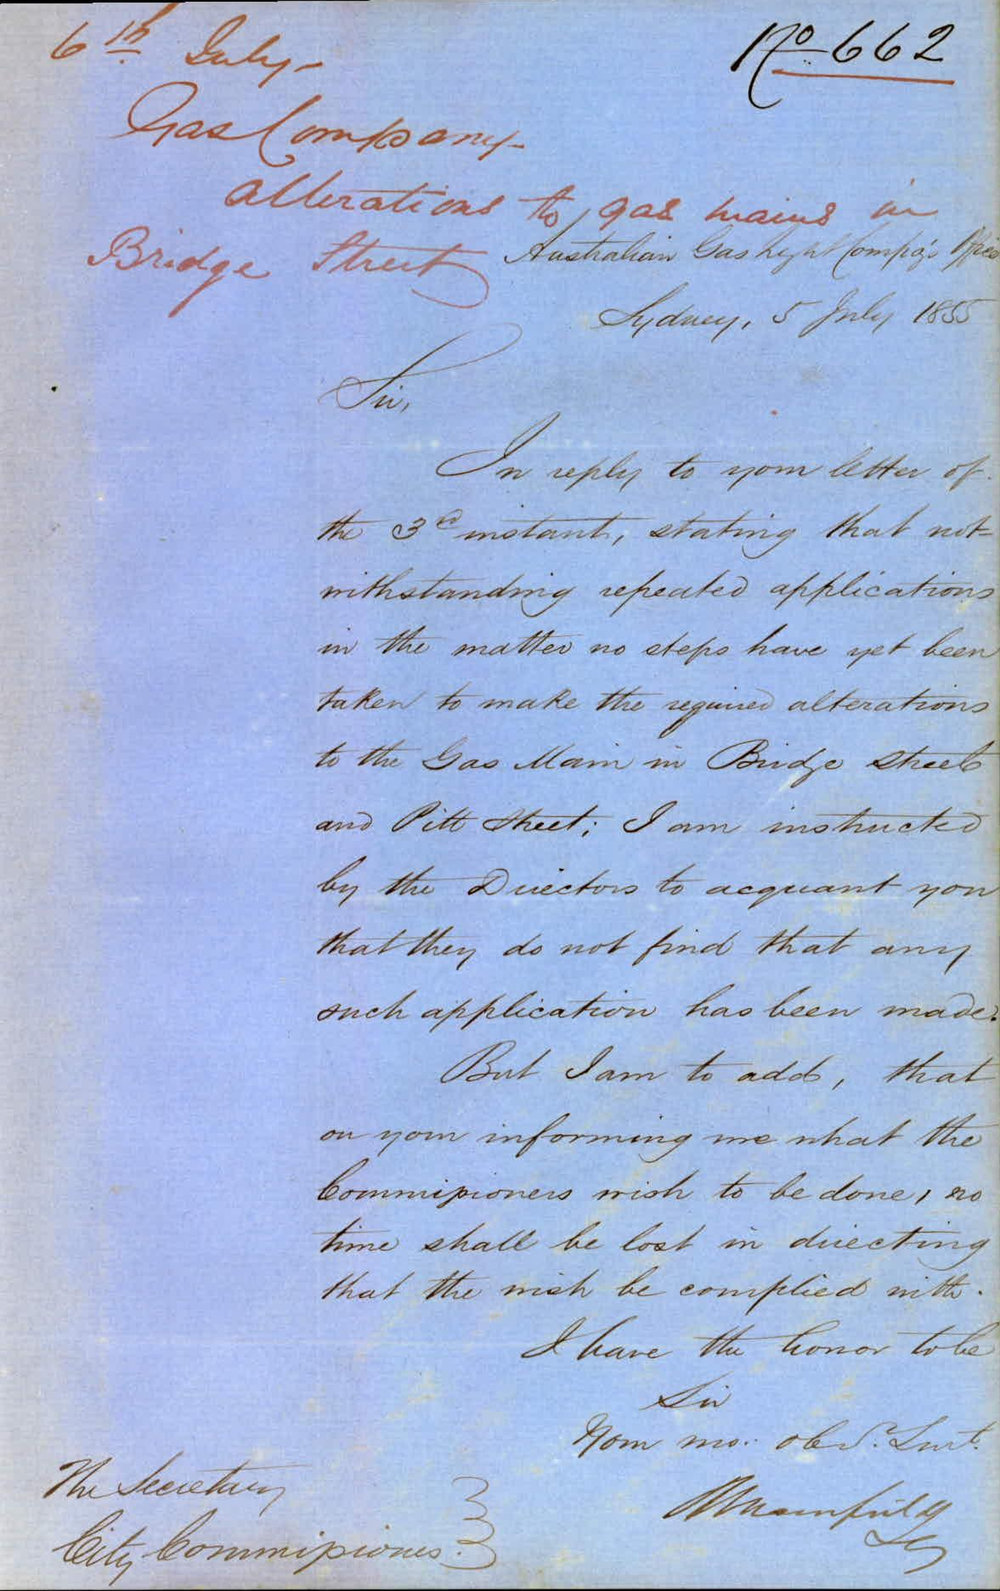 6th July
No 662
Gas Company
alterations to gas mains in
Bridge Street
Australian Gas Light Compy's Office
Sydney, 5 July 1855
Sir,
In reply to your letter of
the 3d instant, stating that not-
withstanding repeated applications
in the matter no steps have yet been
taken to make the required alterations
to the Gas Main in Bridge Street
and Pitt Street; I am instructed
by the Directors to acquaint you
that they do not find that any
such application has been made.
But I am to add, that
on your informing me what the
Commissioners wish to be done, no
time shall be lost in directing
that the wish be complied with.
I have the honor to be
Sir
Your mo. obdt. Servt.
The Secretary
City Commissioners